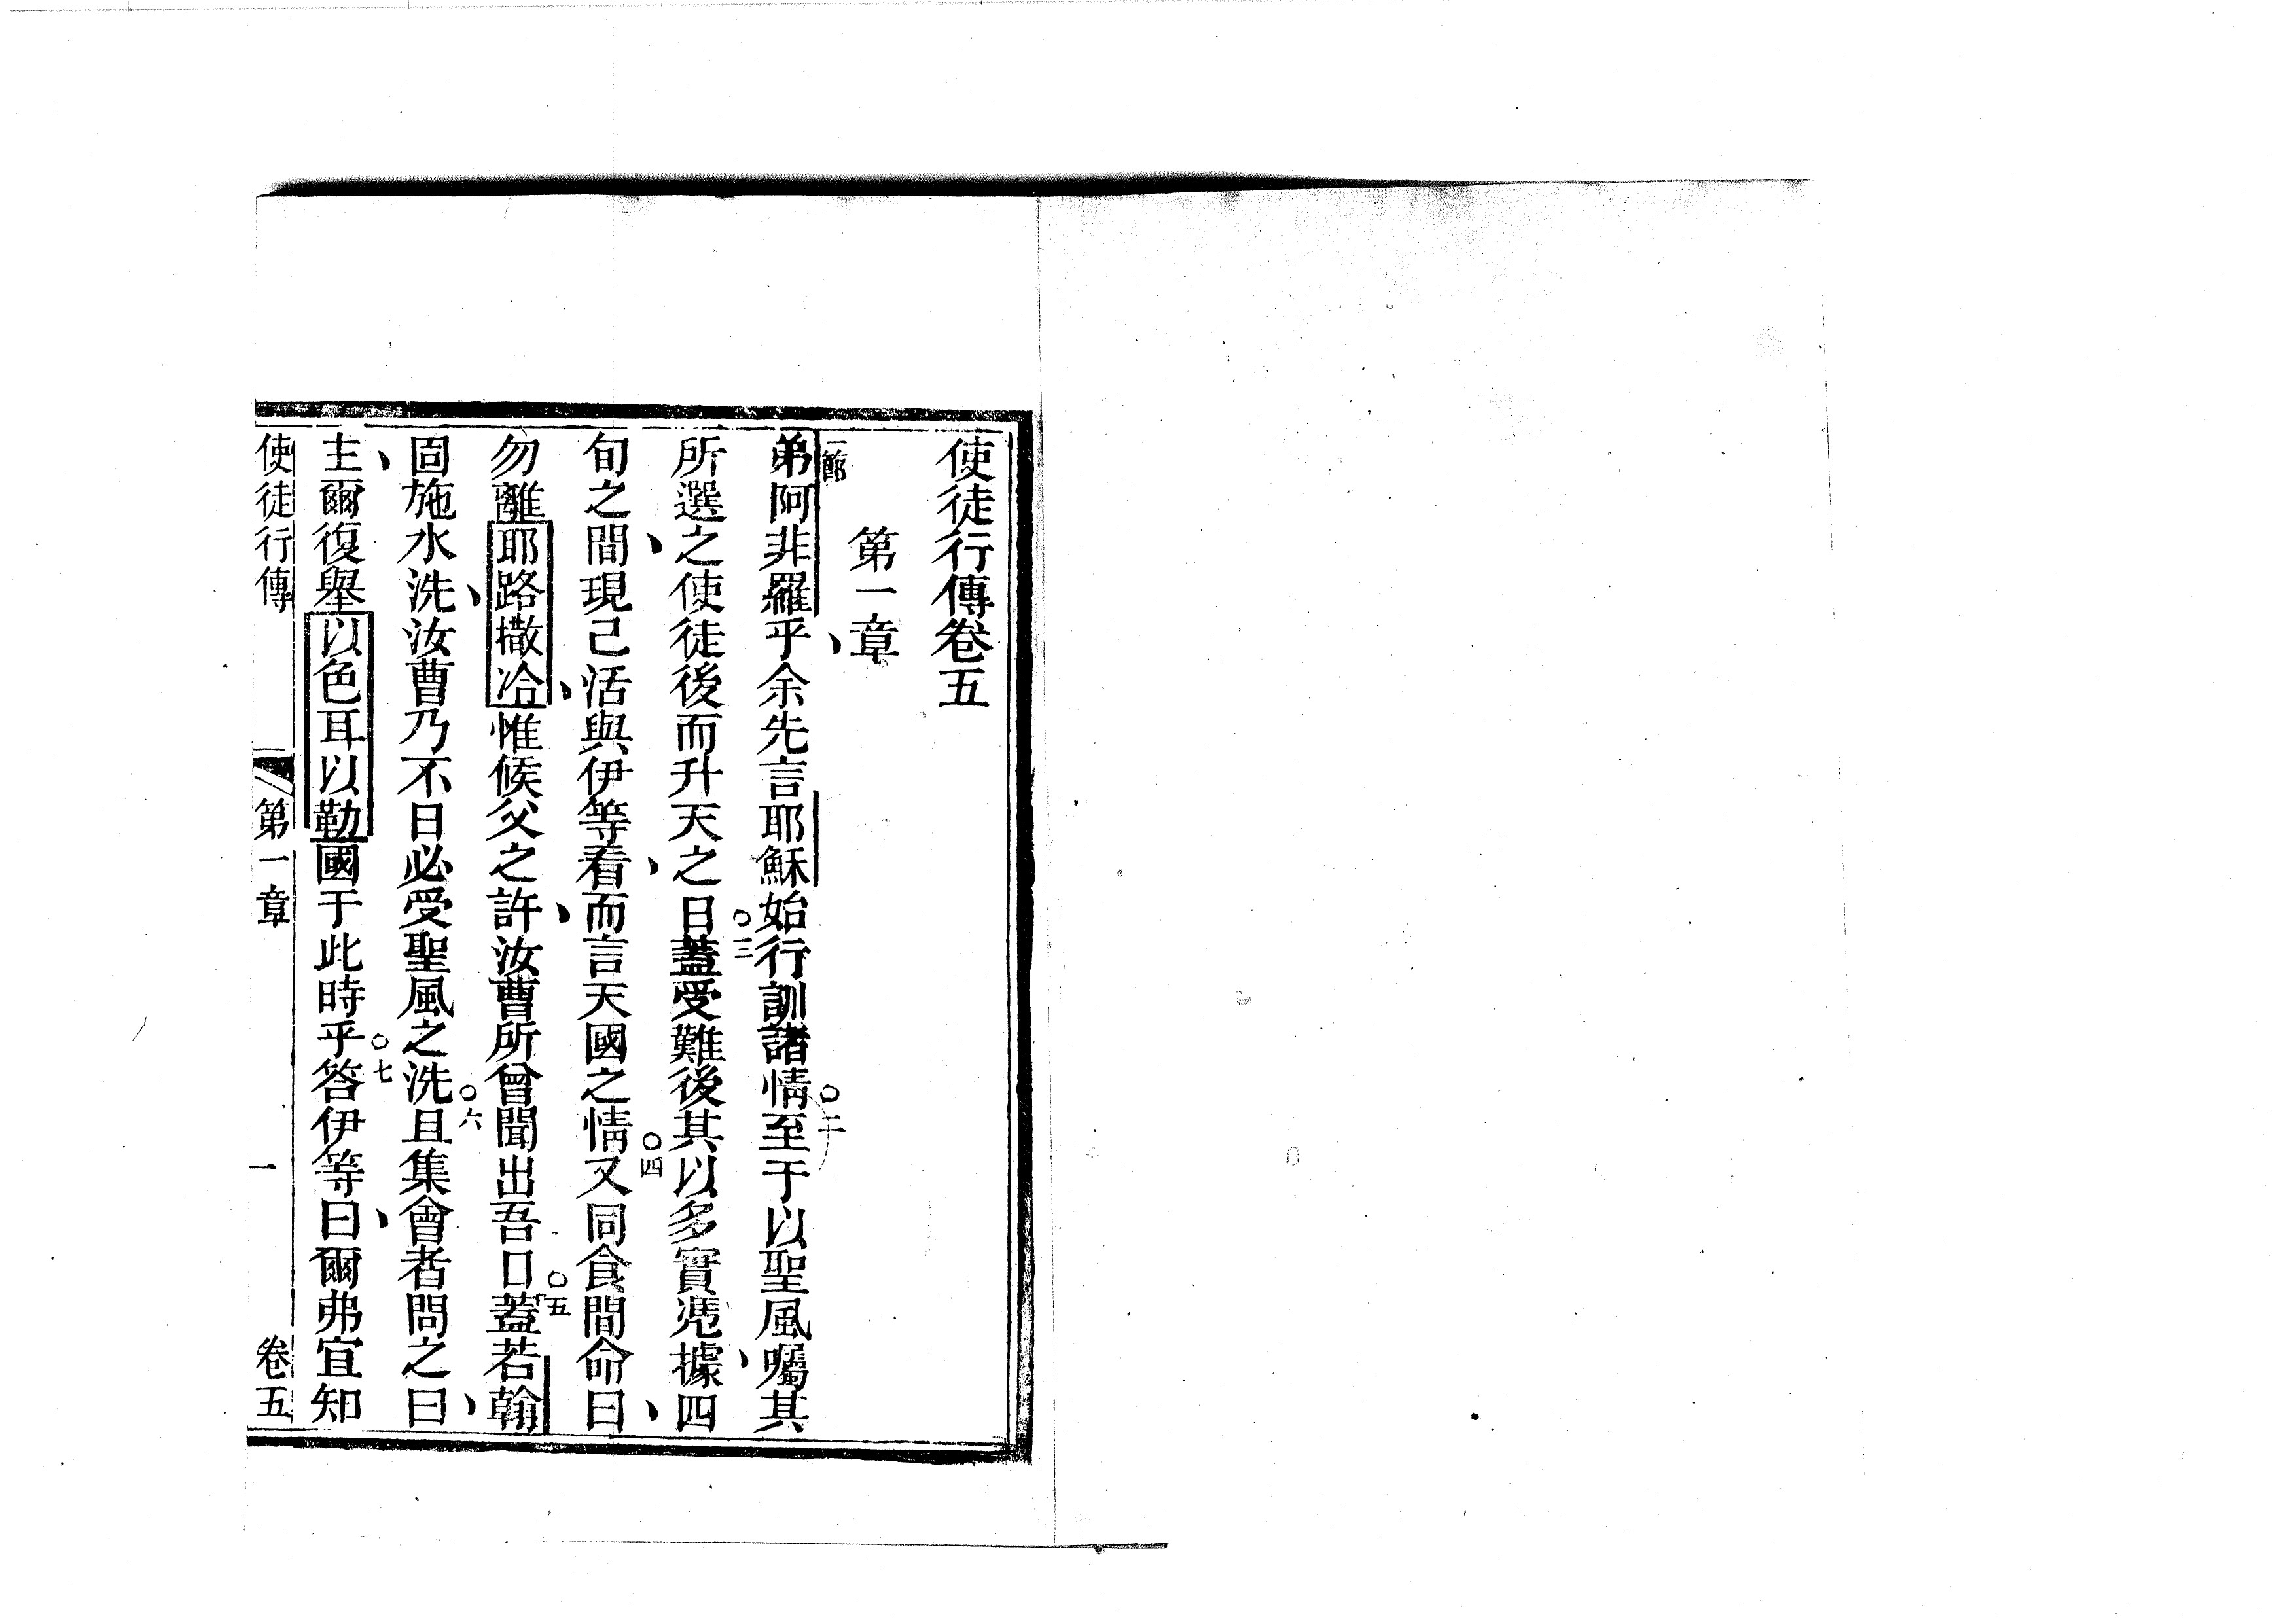 使徒行傳卷五
第一章
一節
弟阿非羅乎、余先言耶穌始行訓諸情○二至于以聖風囑其
所選之使徒後而升天之日○三蓋受難後其以多實慿據、四
旬之間、現己活與伊等看、而言天國之情○四又同食間命曰、
勿離耶路撒冾、惟候父之許、汝曹所曾聞出吾口○五蓋若翰
固施水洗、汝曹乃不日必受聖風之洗○六且集會者問之曰、
主、爾復舉以色耳以勒國于此時乎○七答伊等曰、爾弗宜知
使徒行傳 第一章 一 卷五